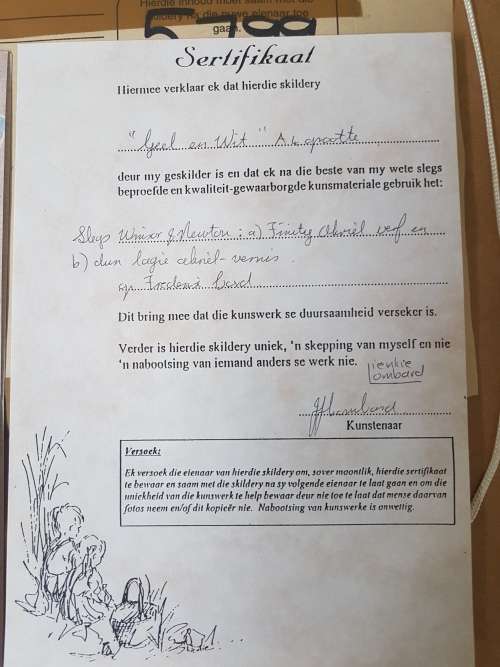 Hierdie inhoud moet saam met die
skildery na die nuwe eienaar toe
gaan.
Sertifikaat
Hiermee verklaar ek dat hierdie skildery
"Geel en Wit"
deur my geskilder is en dat ek na die beste van my wete slegs
beproefde en kwaliteit-gewaarborgde kunsmateriale gebruik het:
Slegs Winsor & Newton: a) Finity Akriel verf en
b) dun lagie akriel-vernis.
op
Dit bring mee dat die kunswerk se duursaamheid verseker is.
Verder is hierdie skildery uniek, 'n skepping van myself en nie
'n nabootsing van iemand anders se werk nie.
ienkie
ombard
Kunstenaar
Versoek:
Ek versoek die eienaar van hierdie skildery om, sover moontlik, hierdie sertifikaat
te bewaar en saam met die skildery na sy volgende eienaar te laat gaan en om die
uniekheid van die kunswerk te help bewaar deur nie toe te laat dat mense daarvan
fotos neem en/of dit kopieër nie. Nabootsing van kunswerke is onwettig.